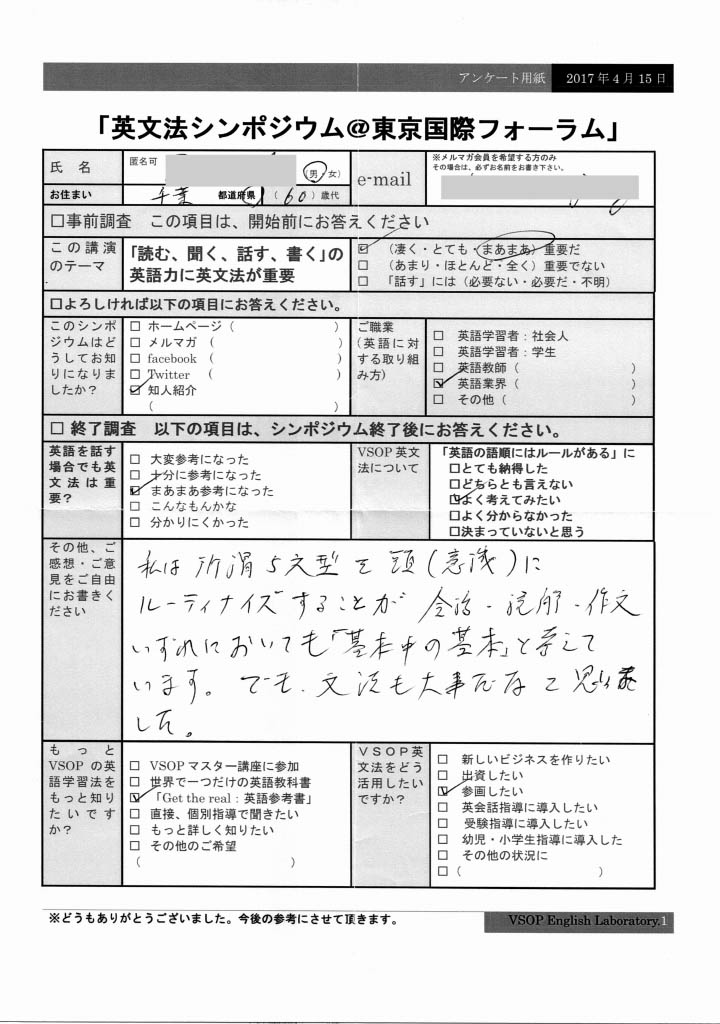 アンケート用紙 2017年4月15日
「英文法シンポジウム@東京国際フォーラム」
氏 名 匿名可 (男・女) e-mail ※メルマガ会員を希望する方のみ
その場合は、必ずお名前をお書き下さい。
お住まい 千葉 都道府県 (60)歳代
□事前調査 この項目は、開始前にお答えください
この講演のテーマ
「読む、聞く、話す、書く」の英語力に英文法が重要
☑ (凄く・とても・まあまあ)重要だ
□ (あまり・ほとんど・全く)重要でない
□ 「話す」には(必要ない・必要だ・不明)
□よろしければ以下の項目にお答えください。
このシンポジウムはどうしてお知りになりましたか?
□ ホームページ( )
□ メルマガ ( )
□ facebook ( )
□ Twitter ( )
☑ 知人紹介
( )
ご職業
(英語に対する取り組み方)
□ 英語学習者:社会人
□ 英語学習者:学生
□ 英語教師( )
☑ 英語業界( )
□ その他( )
□ 終了調査 以下の項目は、シンポジウム終了後にお答えください。
英語を話す場合でも英文法は重要?
□ 大変参考になった
□ 十分に参考になった
☑ まあまあ参考になった
□ こんなもんかな
□ 分かりにくかった
VSOP英文法について
「英語の語順にはルールがある」に
□とても納得した
□どちらとも言えない
☑よく考えてみたい
□よく分からなかった
□決まっていないと思う
その他、ご感想・ご意見をご自由にお書きください
私は所謂5文型を頭(意識)に
ルーティナイズすることが会話・読解・作文
いずれにおいても「基本中の基本」と考えて
います。でも、文法も大事だなと思いま
した。
もっとVSOPの英語学習法をもっと知りたいですか?
□ VSOPマスター講座に参加
□ 世界で一つだけの英語教科書
☑ 「Get the real:英語参考書」
□ 直接、個別指導で聞きたい
□ もっと詳しく知りたい
□ その他のご希望
( )
VSOP英文法をどう活用したいですか?
□ 新しいビジネスを作りたい
□ 出資したい
☑ 参画したい
□ 英会話指導に導入したい
□ 受験指導に導入したい
□ 幼児・小学生指導に導入した
□ その他の状況に
□( )
※どうもありがとうございました。今後の参考にさせて頂きます。
VSOP English Laboratory.1